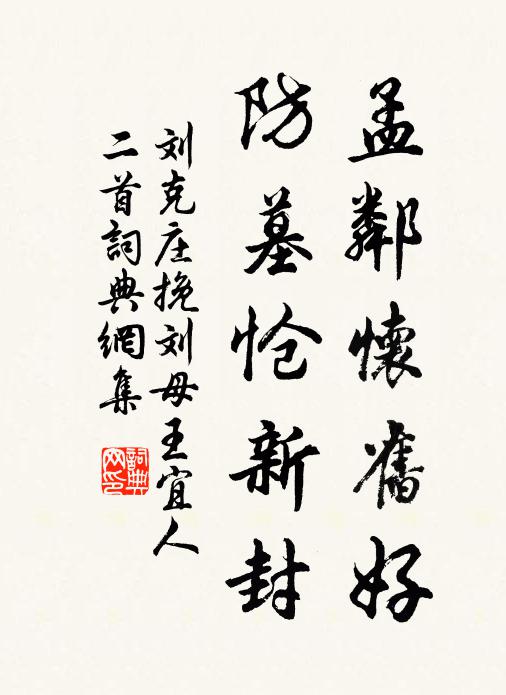 孟鄰懷舊好
防墓怆新封
刘克庄挽刘母王宜人
二首詞典網集
詞典
网印